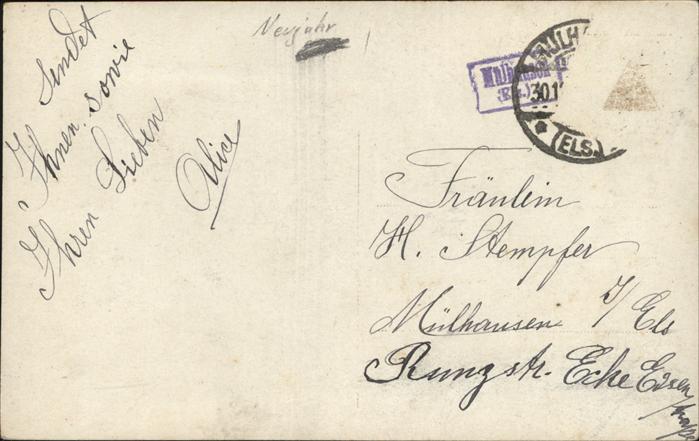 Neujahr
Sendet
Ihnen sowie
Ihren Lieben
Alice
Mülhausen
30.1
(ELS.)
Fräulein
H. Stempfer
Mülhausen I/Els
Rungstr. Ecke